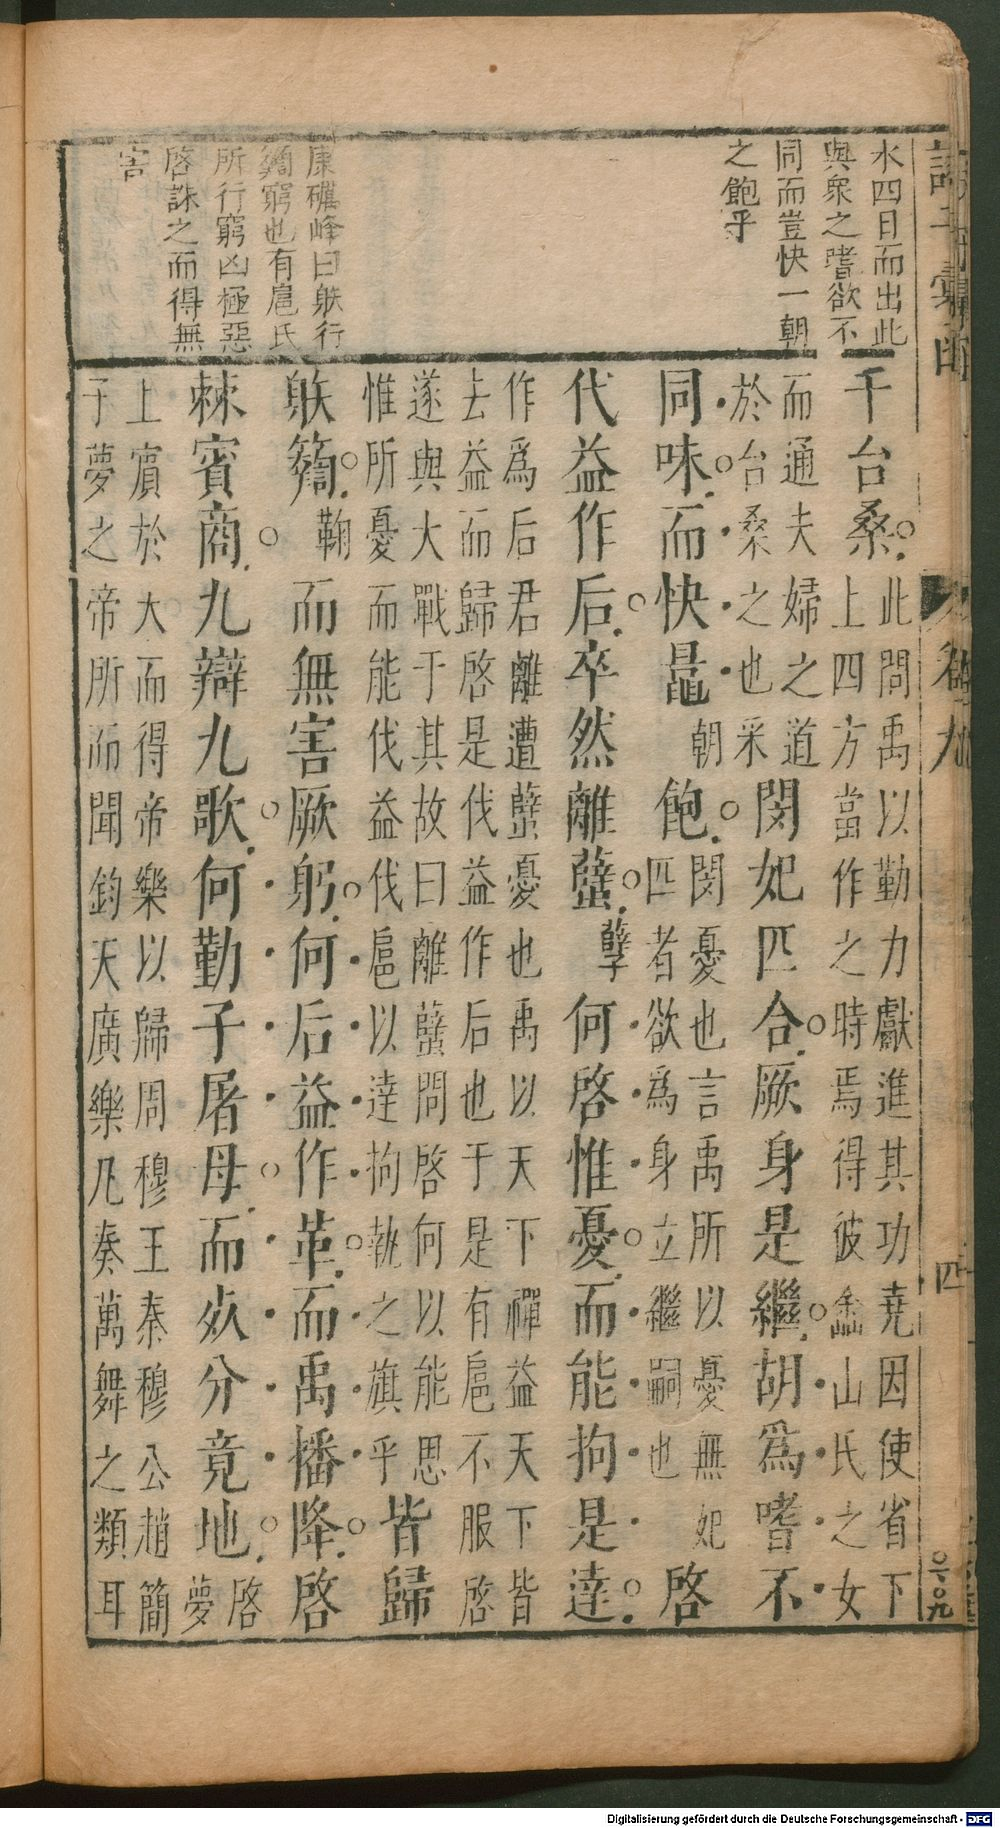 水四日而出此
與衆之嗜欲不
同而豈快一朝
之飽乎
康礪峰曰䠶行
䉕窮也有扈氏
所行窮凶極惡
啓誅之而得無
害
諸子彙函 卷九 四
于台桑。此問禹以勤力獻進其功堯因使省下
上四方當作之時焉得彼嵞山氏之女
而通夫婦之道
於台桑之也采
閔妃匹合。厥身是繼。胡爲嗜不
同味。而快鼂朝飽。閔憂也言禹所以憂無妃
匹者欲爲身立繼嗣也
啓
代益作后。卒然離蠥。孽何啓惟憂。而能拘是達。
作爲后君離遭蠥憂也禹以天下禪益天下皆
去益而歸啓是伐益作后也于是有扈不服啓
遂與大戰于其故曰離蠥問啓何以能思
惟所憂而能伐益伐扈以達拘執之旗乎
皆歸
䠶䉕。鞠而無害厥躬。何后益作革。而禹播降。啓
棘賓商。九辯九歌。何勤子屠母。而死分竟地。啓
夢
上賓於大而得帝樂以歸周穆王秦穆公趙簡
子夢之帝所而聞鈞天廣樂凡奏萬舞之類耳
Digitalisierung gefördert durch die Deutsche Forschungsgemeinschaft - DFG